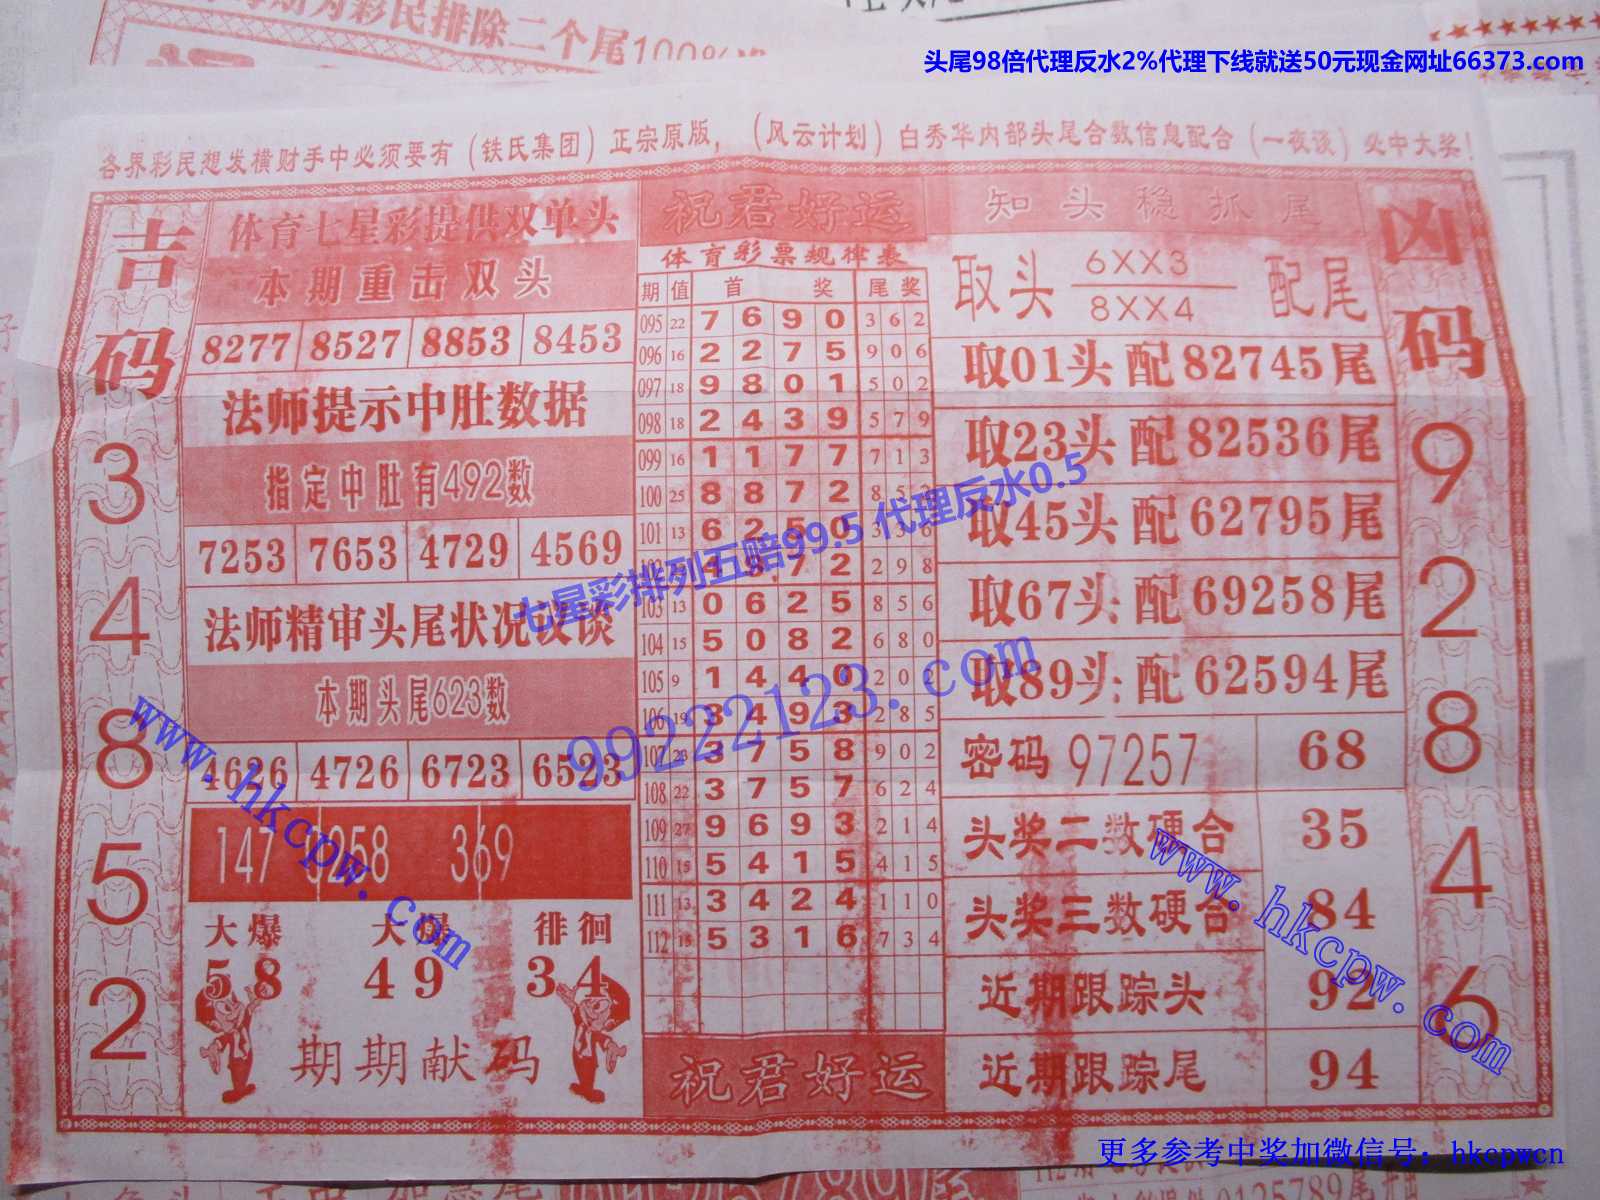 期为彩民排除二个尾100%
头尾98倍代理反水2%代理下线就送50元现金网址66373.com
各界彩民想发横财手中必须要有（铁氏集团）正宗原版，（风云计划）白秀华内部头尾合数信息配合（一夜谈）必中大奖！
吉码
3
4
8
5
2
体育七星彩提供双单头
本期重击双头
8277 8527 8853 8453
法师提示中肚数据
指定中肚有492数
7253 7653 4729 4569
法师精审头尾状况谈
本期头尾623数
4626 4726 6723 6523
147 258 369
大爆 大爆 徘徊
58 49 34
期期献码
祝君好运
体育彩票规律表
期 值 首 奖 尾奖
095 22 7 6 9 0 3 6 2
096 16 2 2 7 5 9 0 6
097 18 9 8 0 1 5 0 2
098 18 2 4 3 9 5 7 9
099 16 1 1 7 7 7 1 3
100 25 8 8 7 2 8 5
101 13 6 2 5 0 3 3 6
7 2 2 9 8
103 13 0 6 2 5 8 5 6
104 15 5 0 8 2 6 8 0
105 9 1 4 4 0 2 0 2
106 19 3 4 9 3 2 8 5
107 23 3 7 5 8 9 0 2
108 22 3 7 5 7 6 2 4
109 27 9 6 9 3 2 1 4
110 15 5 4 1 5 4 1 5
111 13 3 4 2 4 1 1 0
112 15 5 3 1 6 7 3 4
祝君好运
知头稳抓尾
取头 6XX3 8XX4 配尾
取01头配82745尾
取23头配82536尾
取45头配62795尾
取67头配69258尾
取89头配62594尾
密码 97257 68
头奖二数硬合 35
头奖三数硬合 84
近期跟踪头 92
近期跟踪尾 94
凶码
9
2
8
4
6
七星彩排列五赔99.5 代理反水0.5
99222123.com
www.hkcpw.com
www.hkcpw.com
更多参考中奖加微信号：hkcpwcn
0125789尾